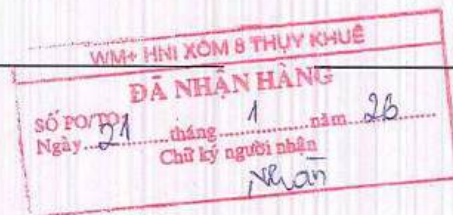 WM+ HNI XÓM 8 THỤY KHUÊ
ĐÃ NHẬN HÀNG
SỐ PO/TO:
Ngày 21 tháng 1 năm 26
Chữ ký người nhận
Nhàn